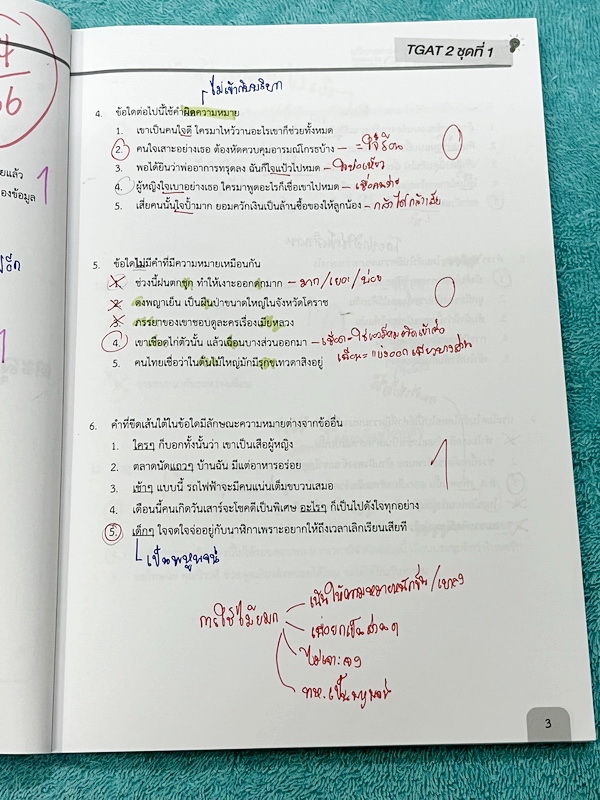 TGAT 2 ชุดที่ 1
ไม่เข้ากับบริบท
4. ข้อใดต่อไปนี้ใช้คำผิดความหมาย
1. เขาเป็นคนใจดี ใครมาไหว้วานอะไรเขาก็ช่วยทั้งหมด
2. คนใจเสาะอย่างเธอ ต้องหัดควบคุมอารมณ์โกรธบ้าง - = ใจร้อน
3. พอได้ยินว่าพ่ออาการทรุดลง ฉันก็ใจแป้วไปหมด - ใจห่อเหี่ยว
4. ผู้หญิงใจเบาอย่างเธอ ใครมาพูดอะไรก็เชื่อเขาไปหมด - เชื่อคนง่าย
5. เสี่ยคนนั้นใจป้ำมาก ยอมควักเงินเป็นล้านซื้อของให้ลูกน้อง - กล้าได้กล้าเสีย
0
5. ข้อใดไม่มีคำที่มีความหมายเหมือนกัน
1. ช่วงนี้ฝนตกชุก ทำให้เงาะออกดกมาก - มาก/เยอะ/บ่อย
2. ดงพญาเย็น เป็นผืนป่าขนาดใหญ่ในจังหวัดโคราช
3. ภรรยาของเขาชอบดูละครเรื่องเมียหลวง
4. เขาเชือดไก่ตัวนั้น แล้วเฉือนบางส่วนออกมา
5. คนไทยเชื่อว่าในต้นไม้ใหญ่มักมีรุกขเทวดาสิงอยู่
0
6. คำที่ขีดเส้นใต้ในข้อใดมีลักษณะความหมายต่างจากข้ออื่น
1. ใครๆ ก็บอกทั้งนั้นว่า เขาเป็นเสือผู้หญิง
2. ตลาดนัดแถวๆ บ้านฉัน มีแต่อาหารอร่อย
3. เช้าๆ แบบนี้ รถไฟฟ้าจะมีคนแน่นเต็มขบวนเสมอ
4. เดือนนี้คนเกิดวันเสาร์จะโชคดีเป็นพิเศษ อะไรๆ ก็เป็นไปดังใจทุกอย่าง
5. เด็กๆ ใจจดใจจ่ออยู่กับนาฬิกาเพราะอยากให้ถึงเวลาเลิกเรียนเสียที
1
เป็นพหูพจน์
การใช้ไม้ยมก
เน้นให้ความหมายหนักขึ้น/เบาลง
เพื่อแยกเป็นส่วนๆ
ไม่เจาะจง
ทห.เป็นพหูพจน์
3